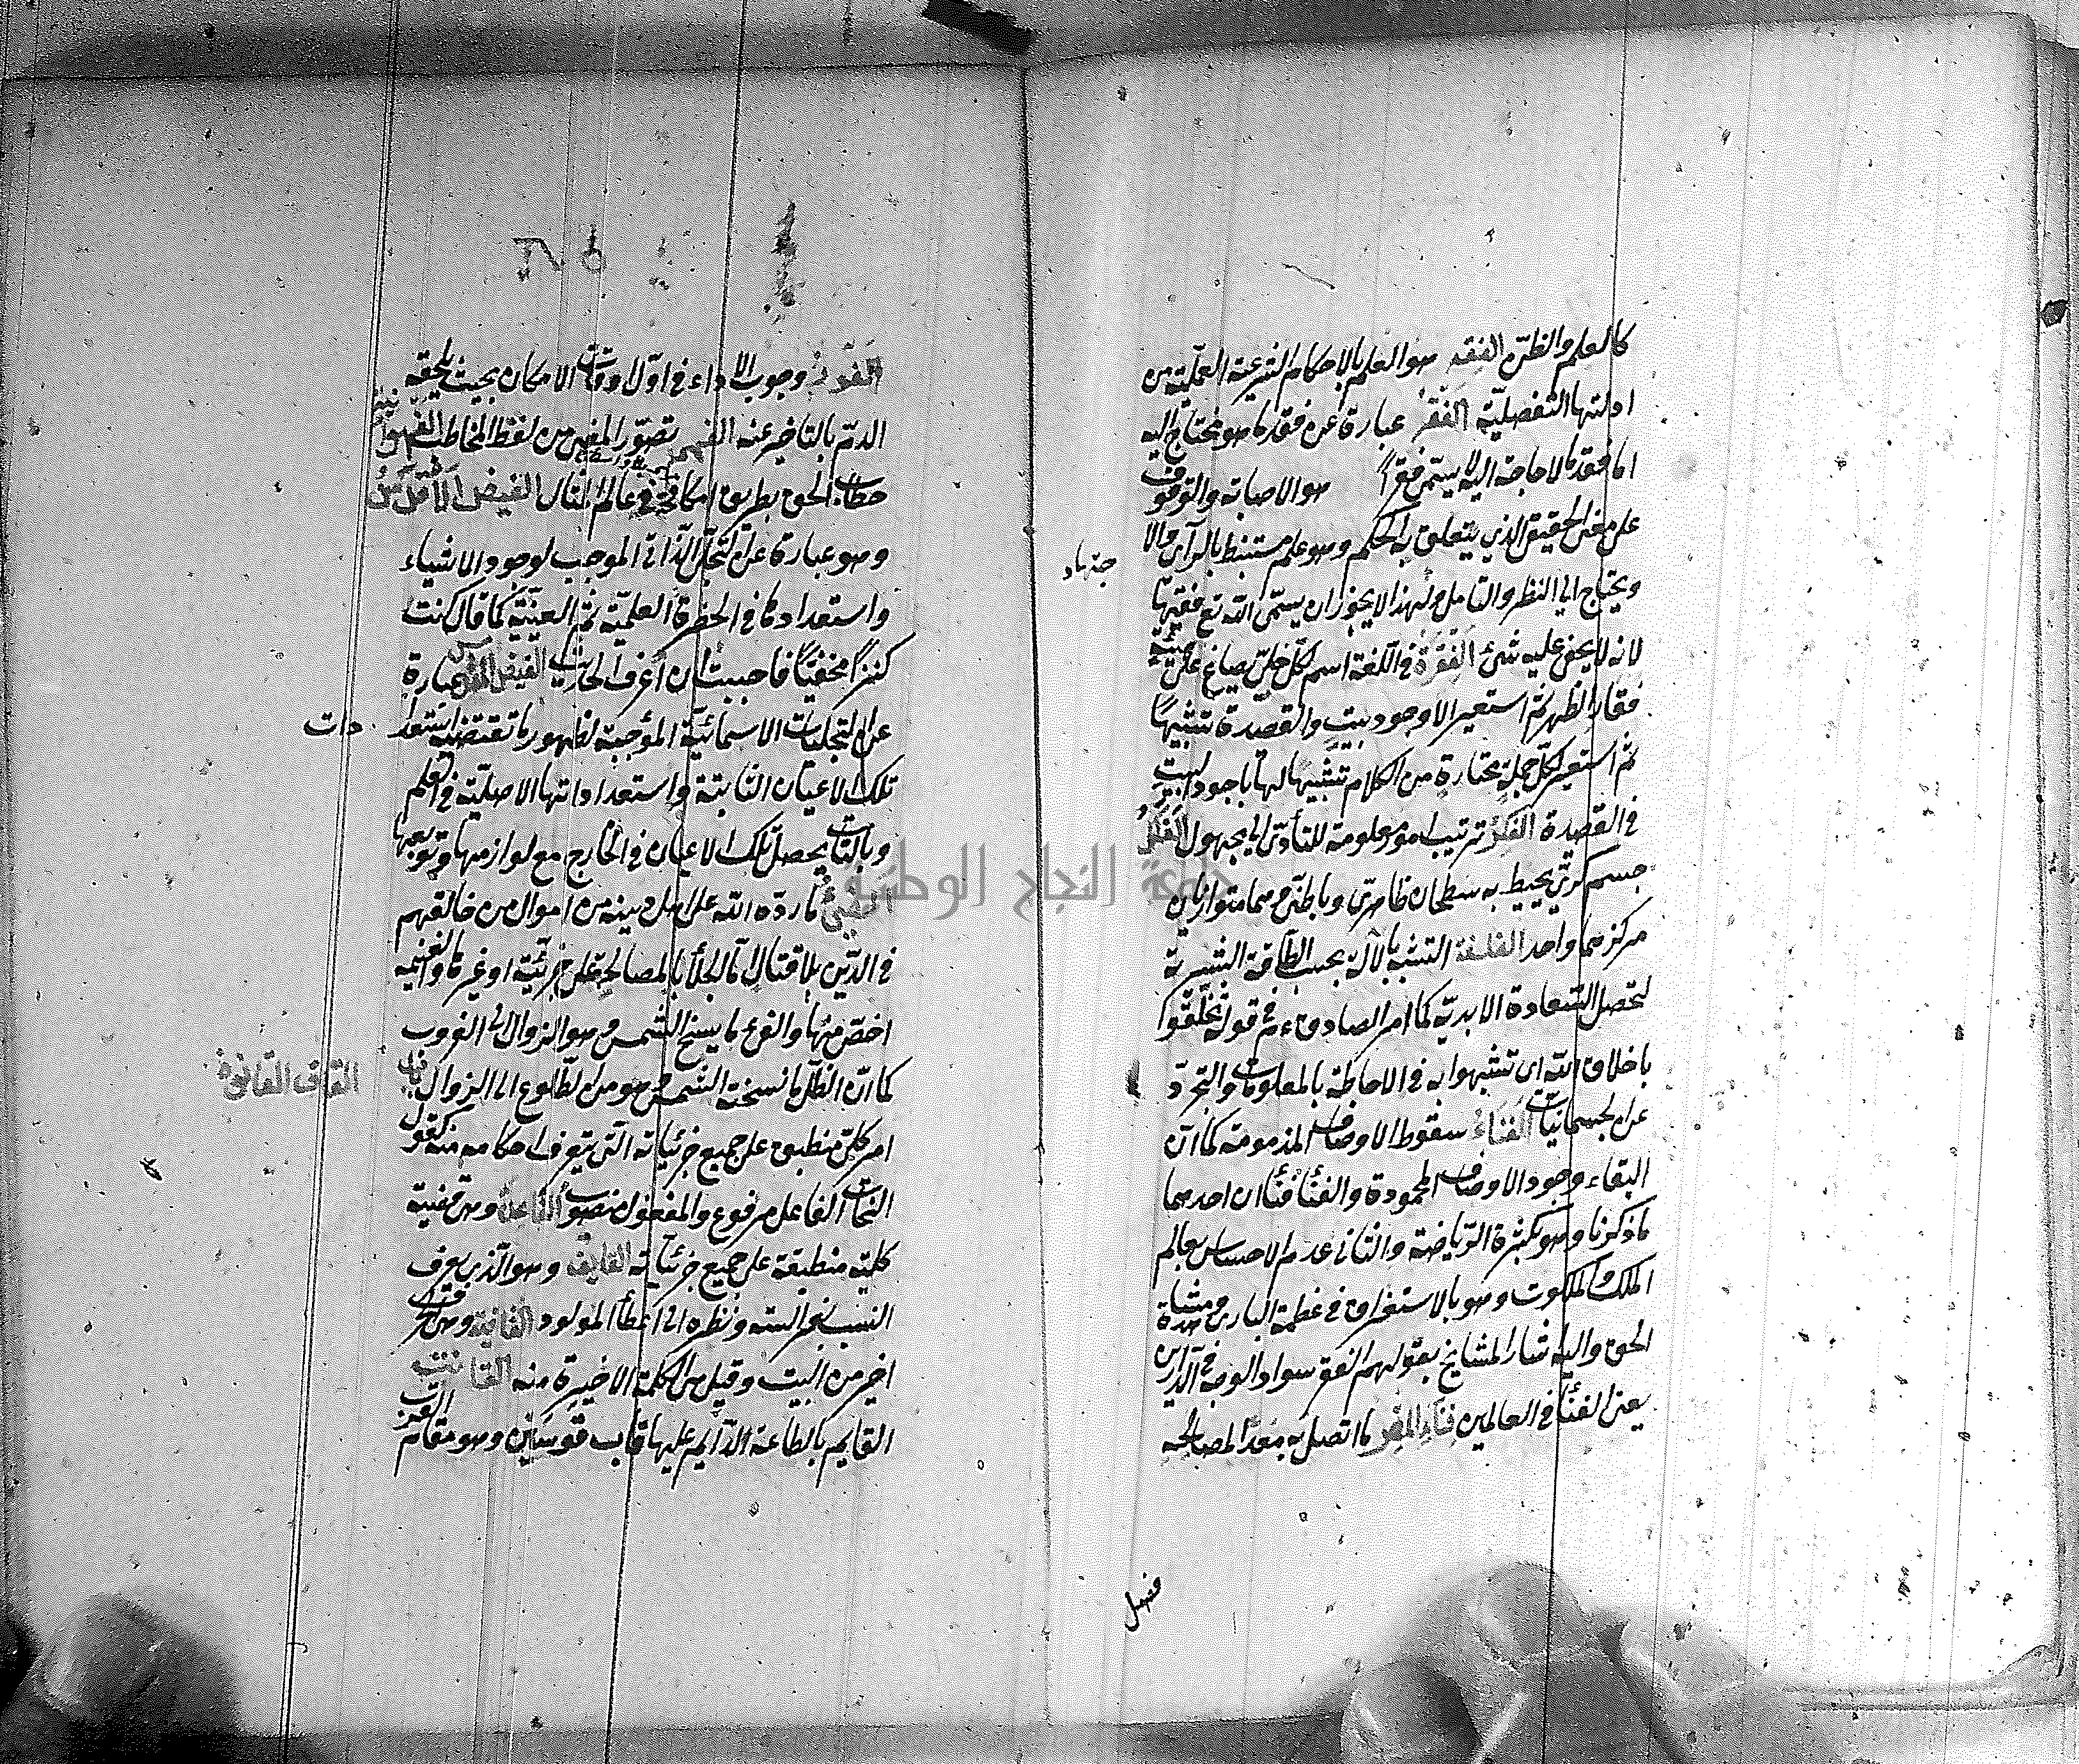 كالعلم والظن الفقه هو العلم بالاحكام الشرعية العملية من
ادلتها التفصيلية الفقر عبارة عن فقد ما هو محتاج اليه
اما فقد ما لا حاجة اليه لا يسمى فقرا هو الاصابة والوقوف
على معنى الحقيق الذي يتعلق به الحكم وهو علم مستنبط بالرأي والا
جتهاد
ويحتاج الى النظر والتأمل ولهذا لا يجوز ان يسمى الله تع فقيها
لانه لا يخفى عليه شئ الفقرة في اللغة اسم لكل حلي يصاغ على هيئة
فقار الظهر ثم استعير الاوجود بيت والقصدة تشبيها
ثم استعير لكل جملة مختارة من الكلام تشبيها لها باجود البيت
في القصدة الفكر ترتيب امور معلومة للتأدى الى مجهول الفلك
جسم كرى يحيط به سطحان ظاهرى وباطنى وهما متوازيان
مركزهما واحد الفلسفة التشبه بالاله بحسب الطاقة البشرية
لتحصل السعادة الابدية كما امر الصادق ءم في قوله تخلقوا
باخلاق الله اى تشبهوا به في الاحاطة بالمعلومات والتجرد
عن الجسمانيات الفناء سقوط الاوصاف المذمومة كما ان
البقاء وجود الاوصاف المحمودة والفناء فناان احدهما
ما ذكرنا وهو بكثرة الرياضة والثاني عدم الاحساس بعالم
الملك والملكوت وهو بالاستغراق في عظمة البارى ومشاهدة
الحق واليه اشار المشايخ بقولهم الفقر سواد الوجه في الدارين
يعنى الفنا في العالمين فناء المصر ما اتصل به معدا لمصالحه
فصل
الفور وجوب الاداء في اول اوقات الامكان بحيث يلحقه
الذم بالتأخير عنه الفهم تصور المعنى من لفظ المخاطب الفهوانية
خطاب الحق بطريق المكافحة في عالم المثال الفيض الاقدس
وهو عبارة عن التجلى الذاتى الموجب لوجود الاشياء
واستعدادها في الحضرة العلمية ثم العينية كما قال كنت
كنزا مخفيا فاحببت ان اعرف الحديث الفيض المقدس عبارة
عن التجليات الاسمائية الموجبة لظهور ما تقتضيه استعدا دات
تلك الاعيان الثابتة واستعداداتها الاصلية في العلم
وبالثاني يحصل تلك الاعيان في الخارج مع لوازمها وتوابعها
الفيئ ما رده الله على اهل دينه من اموال من خالفهم
في الدين بلا قتال اما بالجلا او بالمصالحة على جزية او غيرها والغنيمة
اخص منها والفئ ما ينسخ الشمس وهو الزوال الى الغروب
كما ان الظل ما نسخته الشمس وهو من الطلوع الى الزوال باب
القاف القانون
امر كلى منطبق على جميع جزئياته التى يتعرف احكامه منه كقول
النحاة الفاعل مرفوع والمفعول منصوب القاعدة وهى قضية
كلية منطبقة على جميع جزئياته القايف وهو الذى يعرف
النسب بفراسته ونظره الى اعضأ المولود القافية وهى الحرف
اخير من البيت وقيل هى الكلمة الاخيرة منه القانت
القايم بالطاعة الدايم عليها قاب قوسين وهو مقام القرب